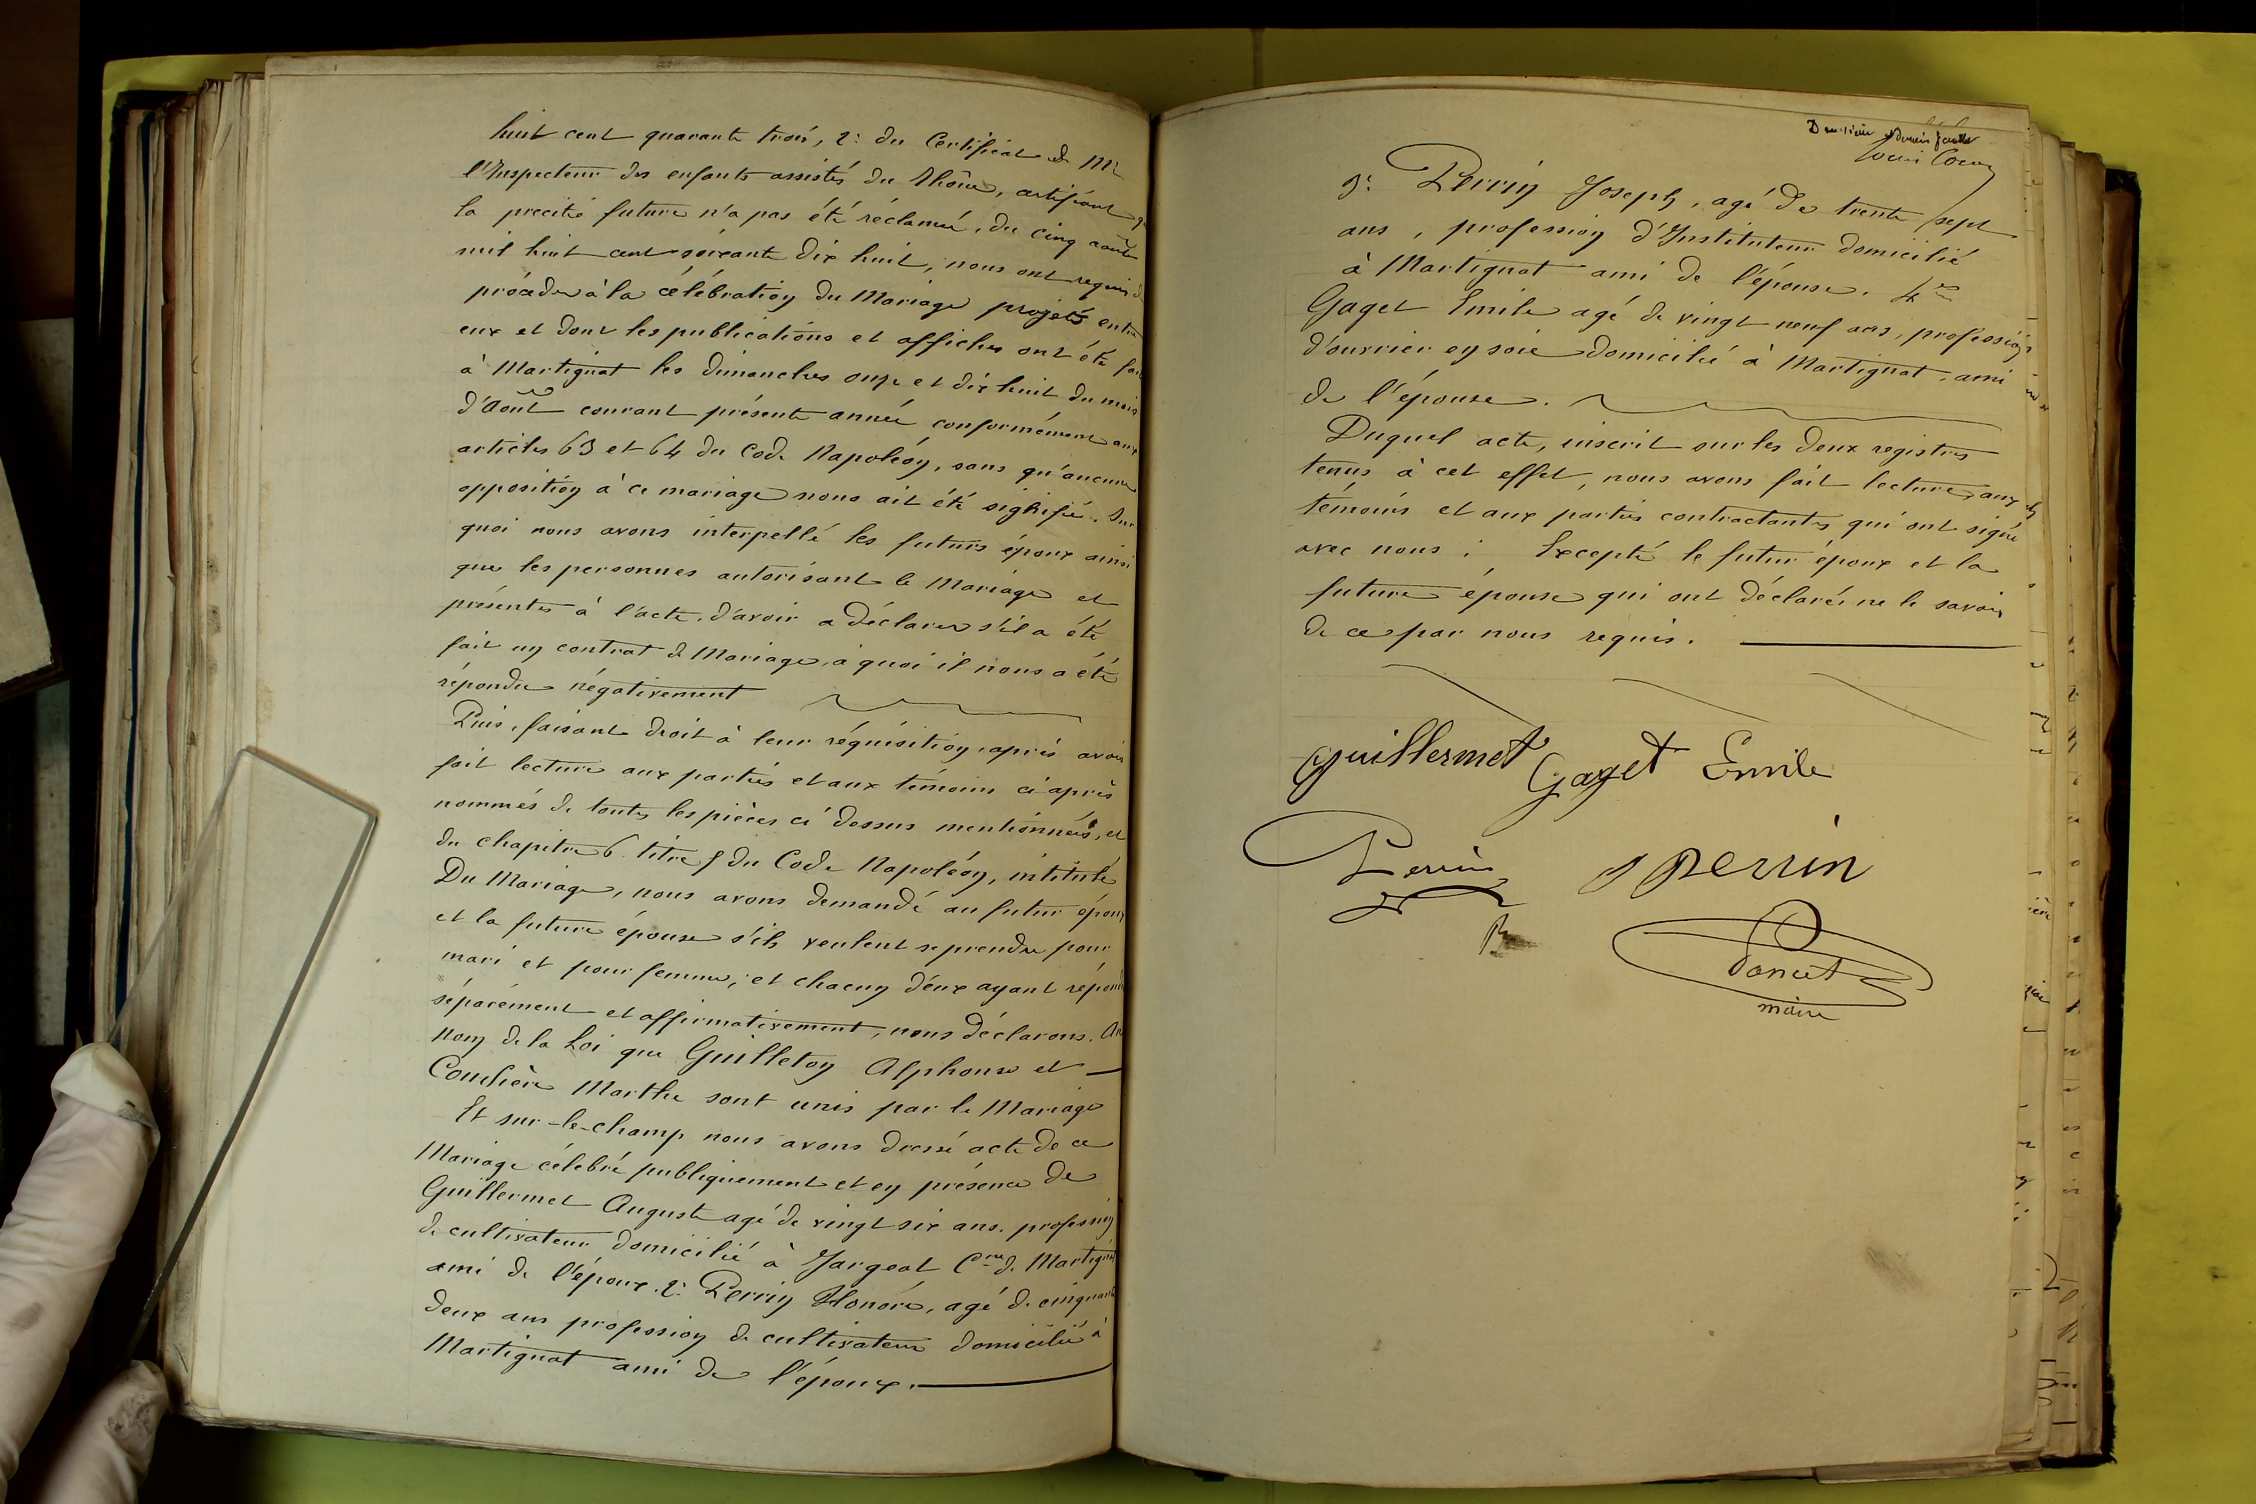 huit cent quarante trois, 2: du Certificat de Mr
l'Inspecteur des enfants assistés du Rhône, certifiant q
la précité future n'a pas été réclamé, du cinq août
mil huit cent soixante dix huit, nous ont requis de
procéder à la célébration du Mariage projeté entre
eux et dont les publications et affiches ont été fai
à Martignat les dimanches onze et dix huit du mois
d'août courant présente année conformément aux
articles 63 et 64 du Code Napoléon, sans qu'aucune
opposition à ce mariage nous ait été signifié. Sur
quoi nous avons interpellé les futurs époux ainsi
que les personnes autorisant le Mariage et
présentes à l'acte, d'avoir a déclarer s'il a été
fait un contrat de Mariage, à quoi il nous a été
répondu négativement
Puis, faisant droit à leur réquisition, après avoir
fait lecture aux parties et aux témoins ci après
nommés de toutes les pièces ci dessus mentionnées, et
du chapitre 6 titre 5 du Code Napoléon, intitulé
Du Mariage, nous avons demandé au futur époux
et la future épouse s'ils veulent se prendre pour
mari et pour femme; et chacun d'eux ayant répondu
séparément et affirmativement, nous déclarons. Au
nom de la Loi que Guilleton Alphonse et
Coudière Marthe sont unis par le Mariage
Et sur-le-champ nous avons dressé acte de ce
Mariage célébré publiquement et en présence de
Guillermet Auguste agé de vingt six ans. profession
de cultivateur domicilié à Jargeat Cne de Martignat
ami de l'époux. 2: Perrin Honoré, agé de cinquante
deux ans profession de cultivateur domicilié à
Martignat ami de l'époux.
Deuxième et dernier feuillet
3: Perrin Joseph, agé de trente sept
ans, profession d'Instituteur domicilié
à Martignat ami de l'épouse. 4e
Gaget Emile agé de vingt neuf ans, profession
d'ouvrier en soie domicilié à Martignat, ami
de l'épouse.
Duquel acte, inscrit sur les deux registres
tenus à cet effet, nous avons fait lecture, aux
témoins et aux parties contractantes qui ont signé
avec nous; Excepté le futur époux et la
future épouse qui ont déclarés ne le savoir
de ce par nous requis.
Guillermet Gaget Emile
Perrin Perrin
Poncet
maire